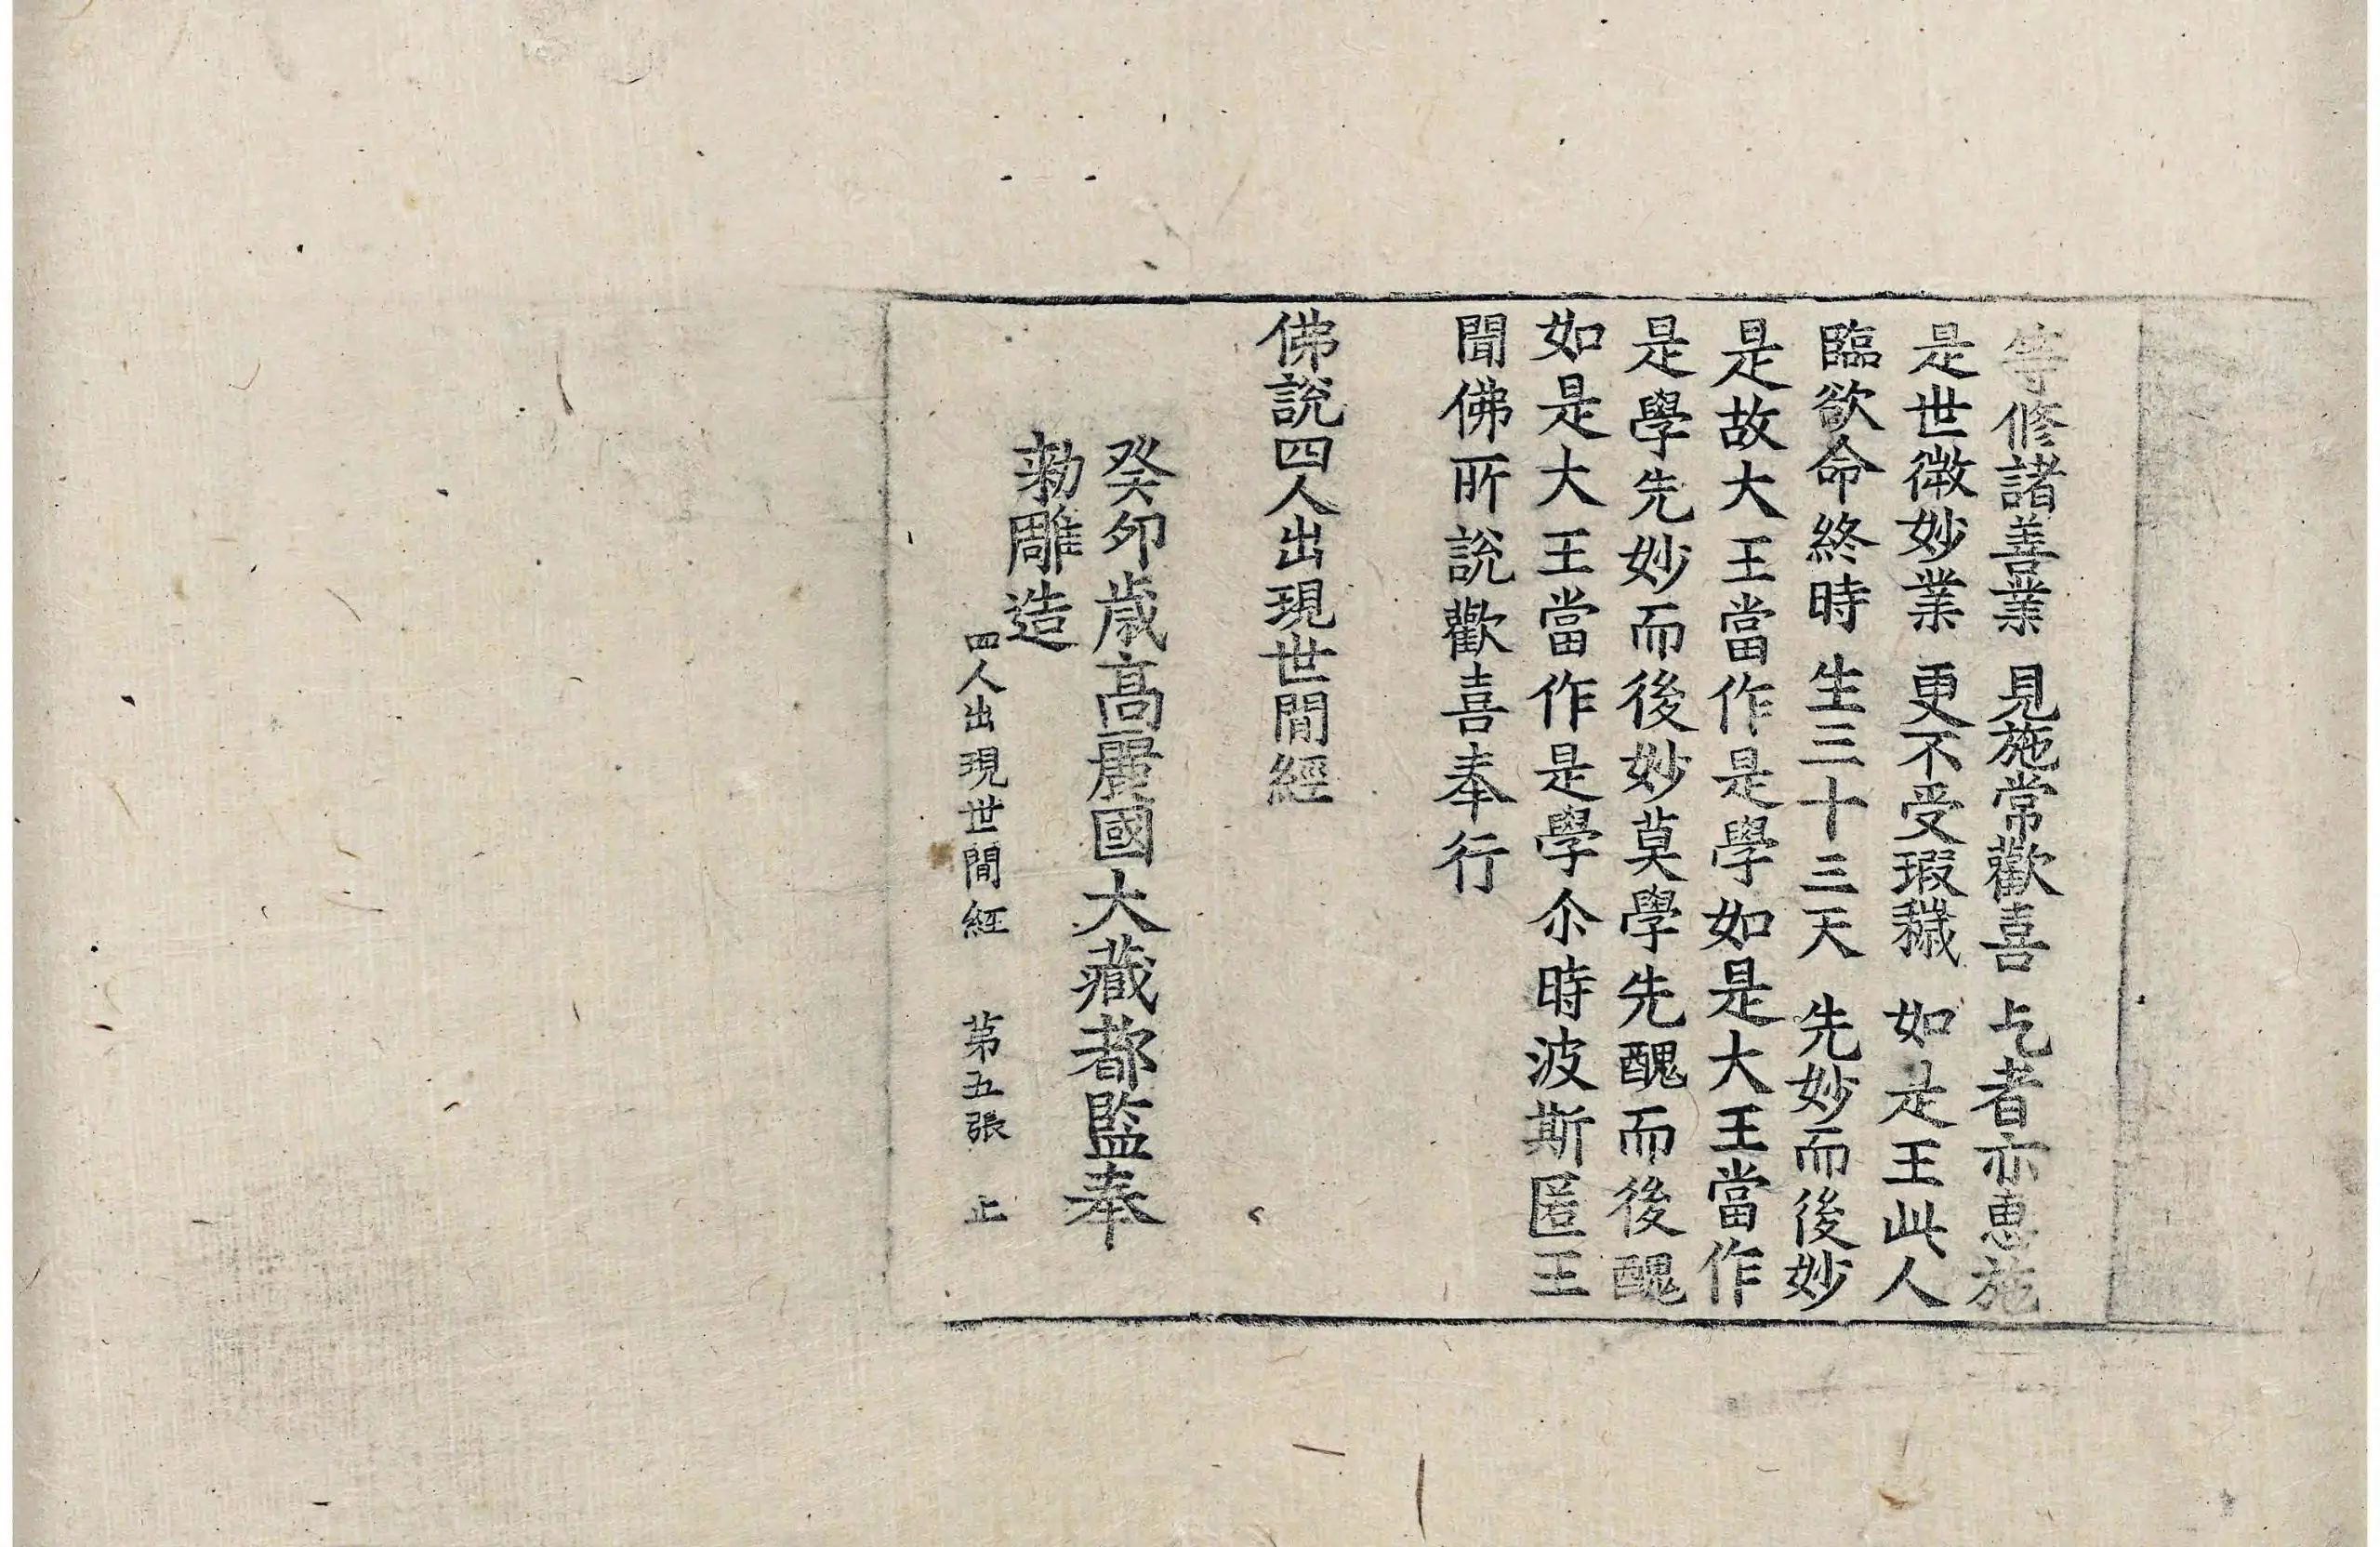 等修諸善業 見施常歡喜 乞者亦惠施
是世微妙業 更不受瑕穢 如是王此人
臨欲命終時 生三十三天 先妙而後妙
是故大王當作是學如是大王當作
是學先妙而後妙莫學先醜而後醜
如是大王當作是學尒時波斯匿王
聞佛所說歡喜奉行
佛說四人出現世間經
癸卯歲高麗國大藏都監奉
勑雕造
四人出現世間經 第五張 止